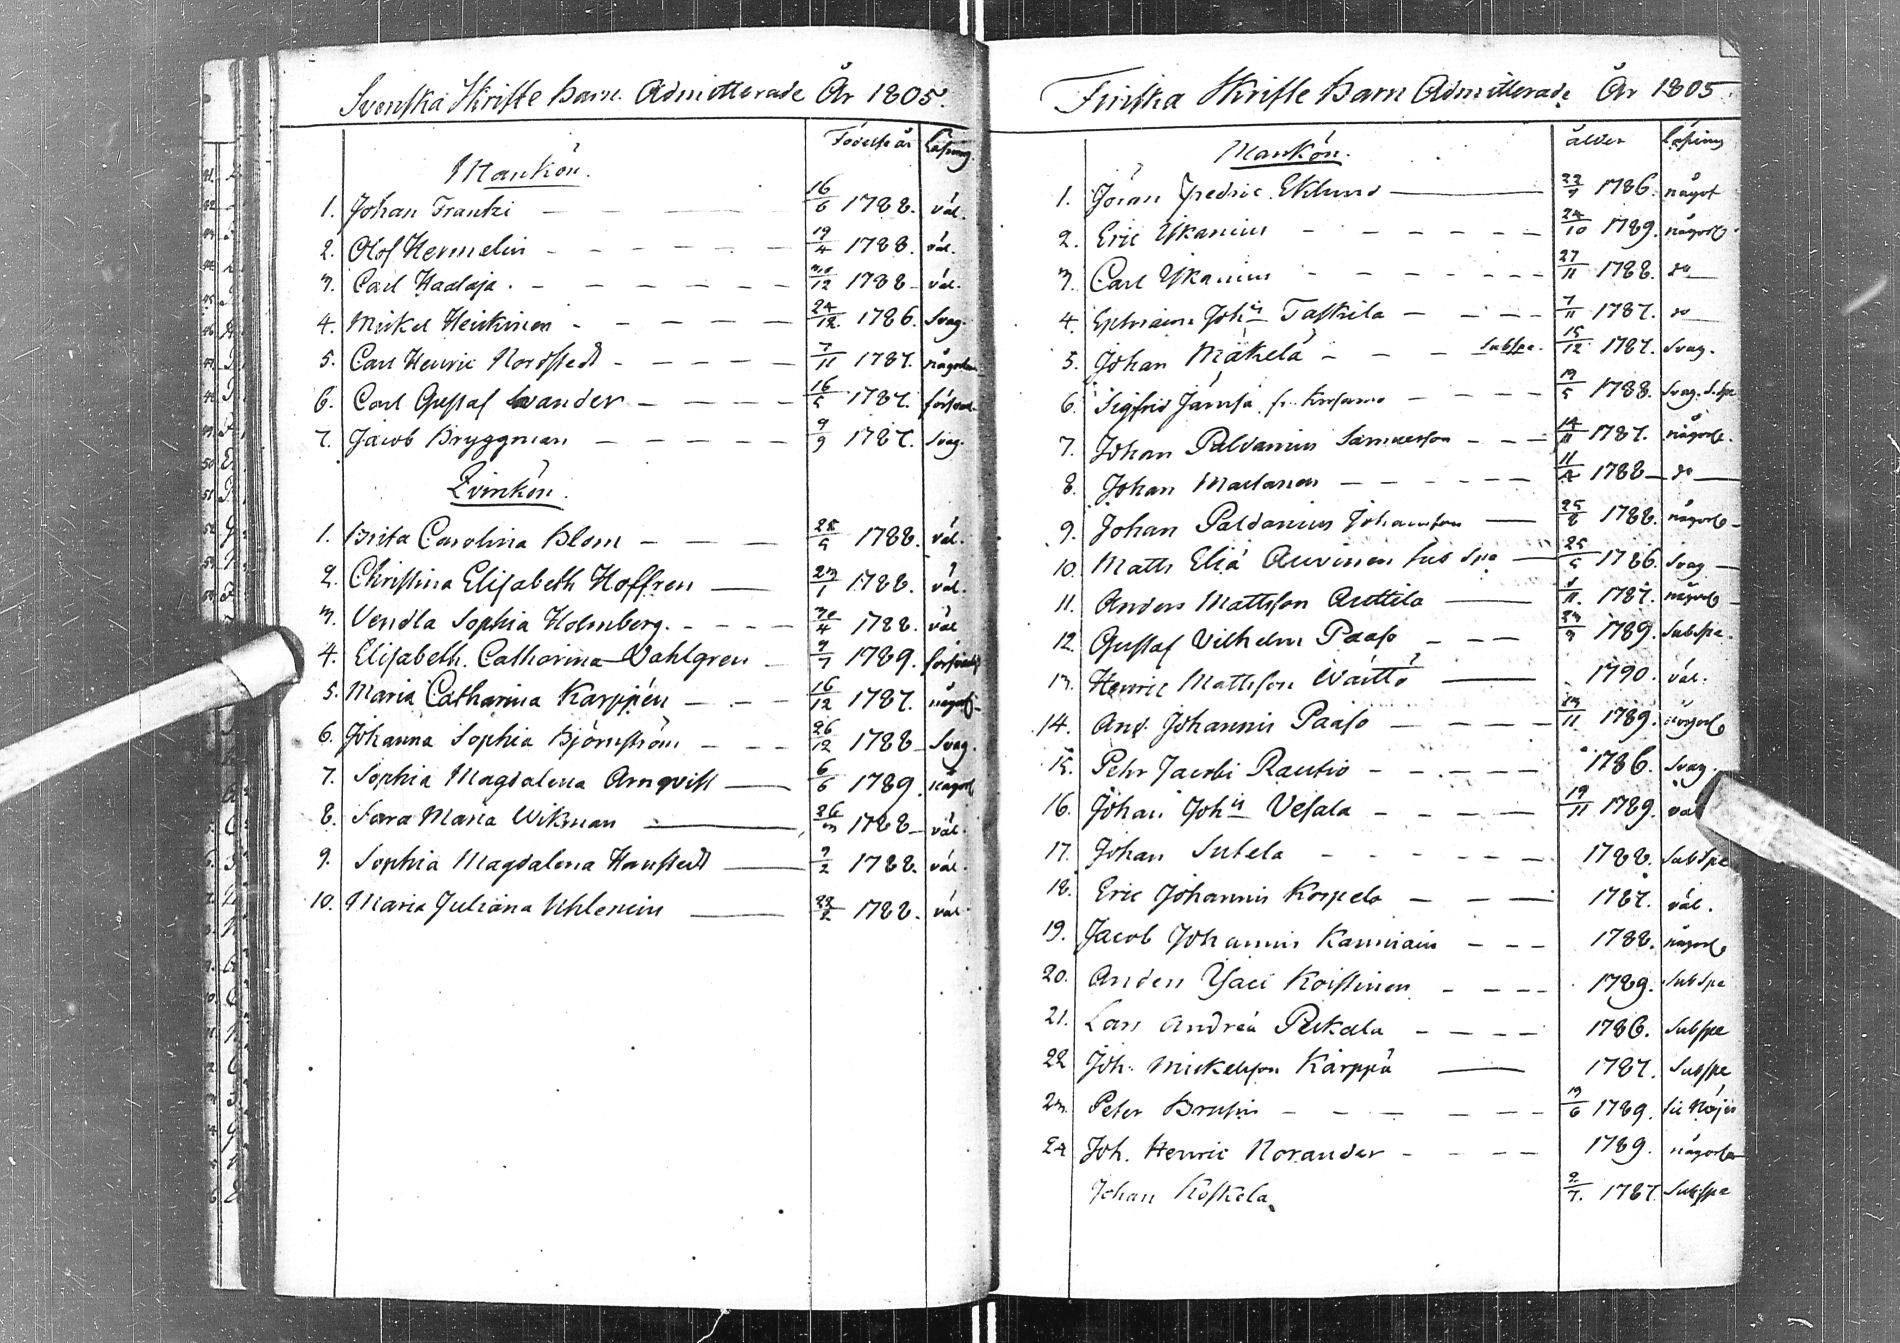 Svenska Skrifte barn Admitterade År 1805.
Födelse år Läsning
Mankön.
1. Johan Frantzi 16/6 1788. väl.
2. Olof Hermelin 19/4 1788. väl.
3. Carl Haataja 30/12 1788 väl.
4. Mickel Heickinen 24/12 1786. Svag.
5. Carl Henric Nordstedt 7/11 1787. någorlun
6. Carl Gustaf Wander 16/5 1787. försvarl.
7. Jacob Bryggman 9/9 1787. Svag.
Qvinkön.
1. Brita Carolina Blom 25/5 1788. väl.
2. Christina Elisabeth Hoffren 23/1 1788. väl.
3. Vendla Sophia Holmberg. 30/4 1788. väl
4. Elisabeth. Catharina Wahlgren 9/7 1789. försvarl
5. Maria Catharina Karppén 16/12 1787. någorl.
6. Johanna Sophia Björnström 26/12 1788 Svag.
7. Sophia Magdalena Arnqvist 6/6 1789. någorl
8. Sara Maria Wikman 26/3 1788 väl.
9. Sophia Magdalena Hanstedt 9/2 1788. väl.
10. Maria Juliana Uhlenius 22/2 1788. väl.
Finska Skrifte barn Admitterade År 1805.
ålder Läsning
Mankön.
1. Jöran Fredric Eklund 22/7 1786. något
2. Eric Iskanius 24/10 1789. någorl.
3. Carl Iskanius 27/11 1788. do
4. Ephraim Johs Taskila 7/11 1787. do
5. Johan Mäkelä Subspe. 15/12 1787. Svag.
6. Sigfrid Jämsä fr. Kusamo 19/5 1788. Svag. S.Spe
7. Johan Paldanius Samuelson 14/11 1787. någorl.
8. Johan Martanen 1788 do
9. Johan Paldanius Johansson 25/8 1788. någorl
10. Matts Eliä Auvinen Sub Spe 25/5 1786. Svag
11. Anders Mattsson Anttila 1787. någorl
12. Gustaf Vilhelm Paaso 1789. Subspe.
13. Henric Mattsson Wäittö 1790. väl.
14. And. Johannis Paaso 1789. någorl
15. Pehr Jacobi Rautio 1786. Svag.
16. Johan Johs Vesala 19/11 1789. väl
17. Johan Sutela 1788. SubSpe
18. Eric Johannis Korpela 1787. väl.
19. Jacob Johannis Kanniain 1788. någorl
20. Anders Isaci Koistinen 1789. SubSpe
21. Lars Andreä Pukala 1786. Subspe
22 Joh. Mickelsson Kärppä 1787. Subspe
23. Peter Brusin 1789. til Nöjes
24 Joh. Henric Norander 1789. någorlun
Johan Koskela 1787. Subspe